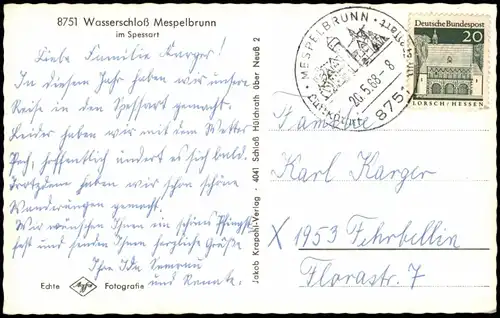 8751 Wasserschloß Mespelbrunn
im Spessart
Liebe Familie Karger!
In diesem Jahr haben wir unsere
Reise in den Spessart gemacht.
Leider haben wir mit dem Wetter
Pech, hoffentlich ändert es sich bald.
Trotzdem haben wir schon schöne
Wanderungen gemacht.
Wir wünschen Ihnen ein schönes Pfingst-
fest und senden Ihnen herzliche Grüße
Ihre Ida
und Renate.
Echte Agfa Fotografie
Jakob Krapohl-Verlag · 4041 Schloß Hülchrath über Neuß 2
MESPELBRUNN
20.5.68-8
8751
Luftkurort
Deutsche Bundespost
20
LORSCH/HESSEN
Familie
Karl Karger
X 1953 Fehrbellin
Florastr. 7